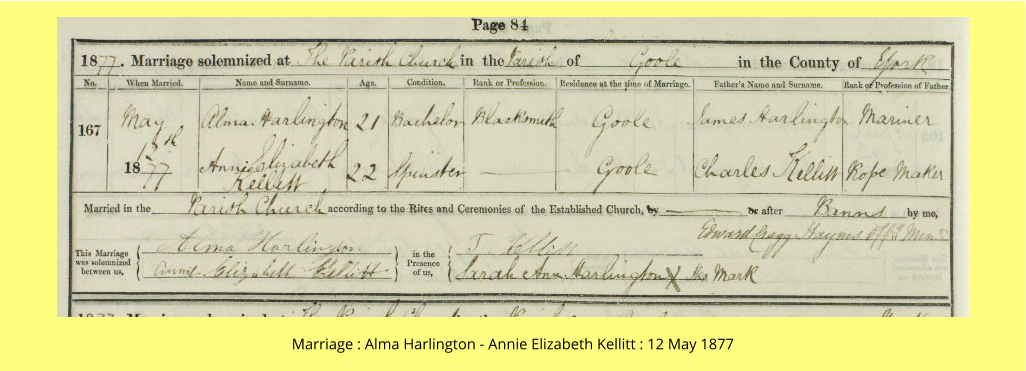 Page 84
1877. Marriage solemnized at The Parish Church in the Parish of Goole in the County of York
No. When Married. Name and Surname. Age. Condition. Rank or Profession. Residence at the time of Marriage. Father's Name and Surname. Rank or Profession of Father.
167 May Alma Harlington 21 Bachelor Blacksmith Goole James Harlington Mariner
1877 Annie Elizabeth Kellitt 22 Spinster Goole Charles Kellitt Rope Maker
Married in the Parish Church according to the Rites and Ceremonies of the Established Church, by or after Banns by me,
Edward Haynes Offg Min
This Marriage was solemnized between us, Alma Harlington in the Presence of us, Kellitt
Annie Elizabeth Kellitt Sarah Ann Harlington X Her Mark
Marriage : Alma Harlington - Annie Elizabeth Kellitt : 12 May 1877